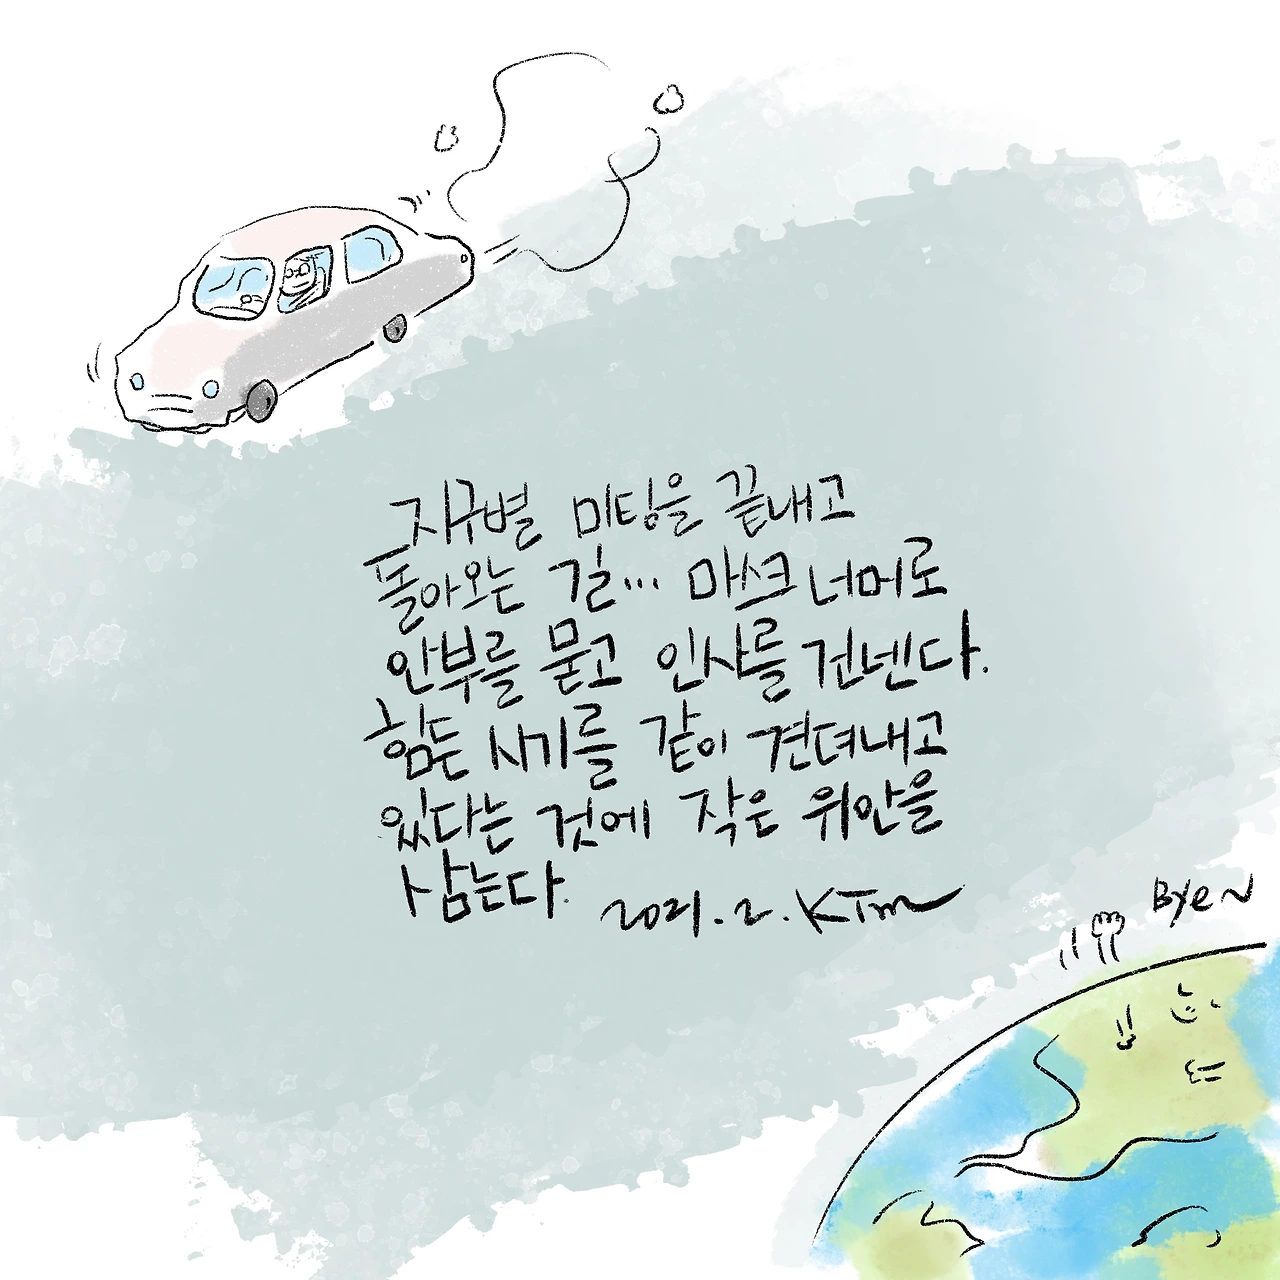 지구별 미팅을 끝내고
돌아오는 길... 마스크 너머로
안부를 묻고 인사를 건넨다.
힘든 시기를 같이 견뎌내고
있다는 것에 작은 위안을
삼는다.
2021.2. KTm
Bye~